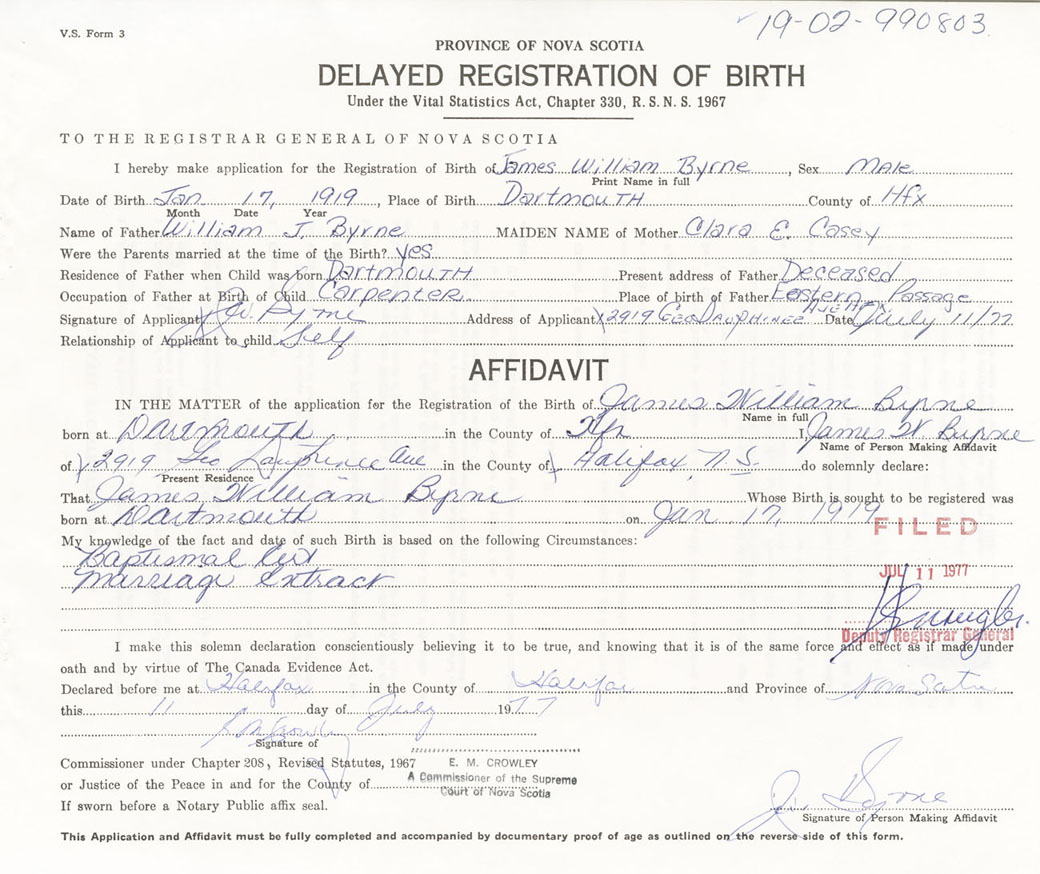 19-02-990803
V.S. Form 3
PROVINCE OF NOVA SCOTIA
DELAYED REGISTRATION OF BIRTH
Under the Vital Statistics Act, Chapter 330, R. S. N. S. 1967
TO THE REGISTRAR GENERAL OF NOVA SCOTIA
I hereby make application for the Registration of Birth of James William Byrne, Sex Male
Print Name in full
Date of Birth Jan 17, 1919, Place of Birth Dartmouth County of Hfx
Month Date Year
Name of Father William J. Byrne MAIDEN NAME of Mother Clara E. Casey
Were the Parents married at the time of the Birth? Yes
Residence of Father when Child was born Dartmouth Present address of Father Deceased
Occupation of Father at Birth of Child Carpenter. Place of birth of Father Eastern Passage
Signature of Applicant J.W. Byrne Address of Applicant X2919 Geo Dauphinee Ave Hfx. Date July 11/77
Relationship of Applicant to child Self
AFFIDAVIT
IN THE MATTER of the application for the Registration of the Birth of James William Byrne
Name in full
born at Dartmouth in the County of Hfx I, James W Byrne
Name of Person Making Affidavit
of 2919 Geo Dauphinee Ave in the County of Halifax N.S. do solemnly declare:
Present Residence
That James William Byrne Whose Birth is sought to be registered was
born at Dartmouth on Jan 17, 1919
FILED
My knowledge of the fact and date of such Birth is based on the following Circumstances:
Baptismal Cert
Marriage extract
JUL 11 1977
Deputy Registrar General
I make this solemn declaration conscientiously believing it to be true, and knowing that it is of the same force and effect as if made under
oath and by virtue of The Canada Evidence Act.
Declared before me at Halifax in the County of Halifax and Province of Nova Scotia
this 11 day of July 1977
Signature of
Commissioner under Chapter 208, Revised Statutes, 1967 E. M. CROWLEY
or Justice of the Peace in and for the County of A Commissioner of the Supreme
Court of Nova Scotia
If sworn before a Notary Public affix seal.
J.W. Byrne
Signature of Person Making Affidavit
This Application and Affidavit must be fully completed and accompanied by documentary proof of age as outlined on the reverse side of this form.